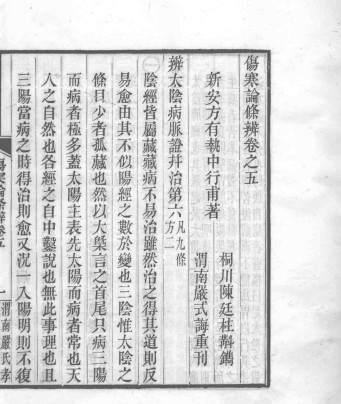 傷寒論條辨卷之五
新安方有執中行甫著
桐川陳廷柱斠鐫
渭南嚴式誨重刊
辨太陰病脈證幷治第六凡九條方二
㊀陰經皆屬藏藏病不易治雖然治之得其道則反
易愈由其不似陽經之數於變也三陰惟太陰之
條目少者孤藏也然以大槩言之首尾只病三陽
而病者極多蓋太陽主表先太陽而病者常也天
人之自然也各經之自中鑿說也無此事理也且
三陽當病之時得治則愈又況一入陽明則不復
傷寒論條辨卷五
一
渭南嚴氏孝